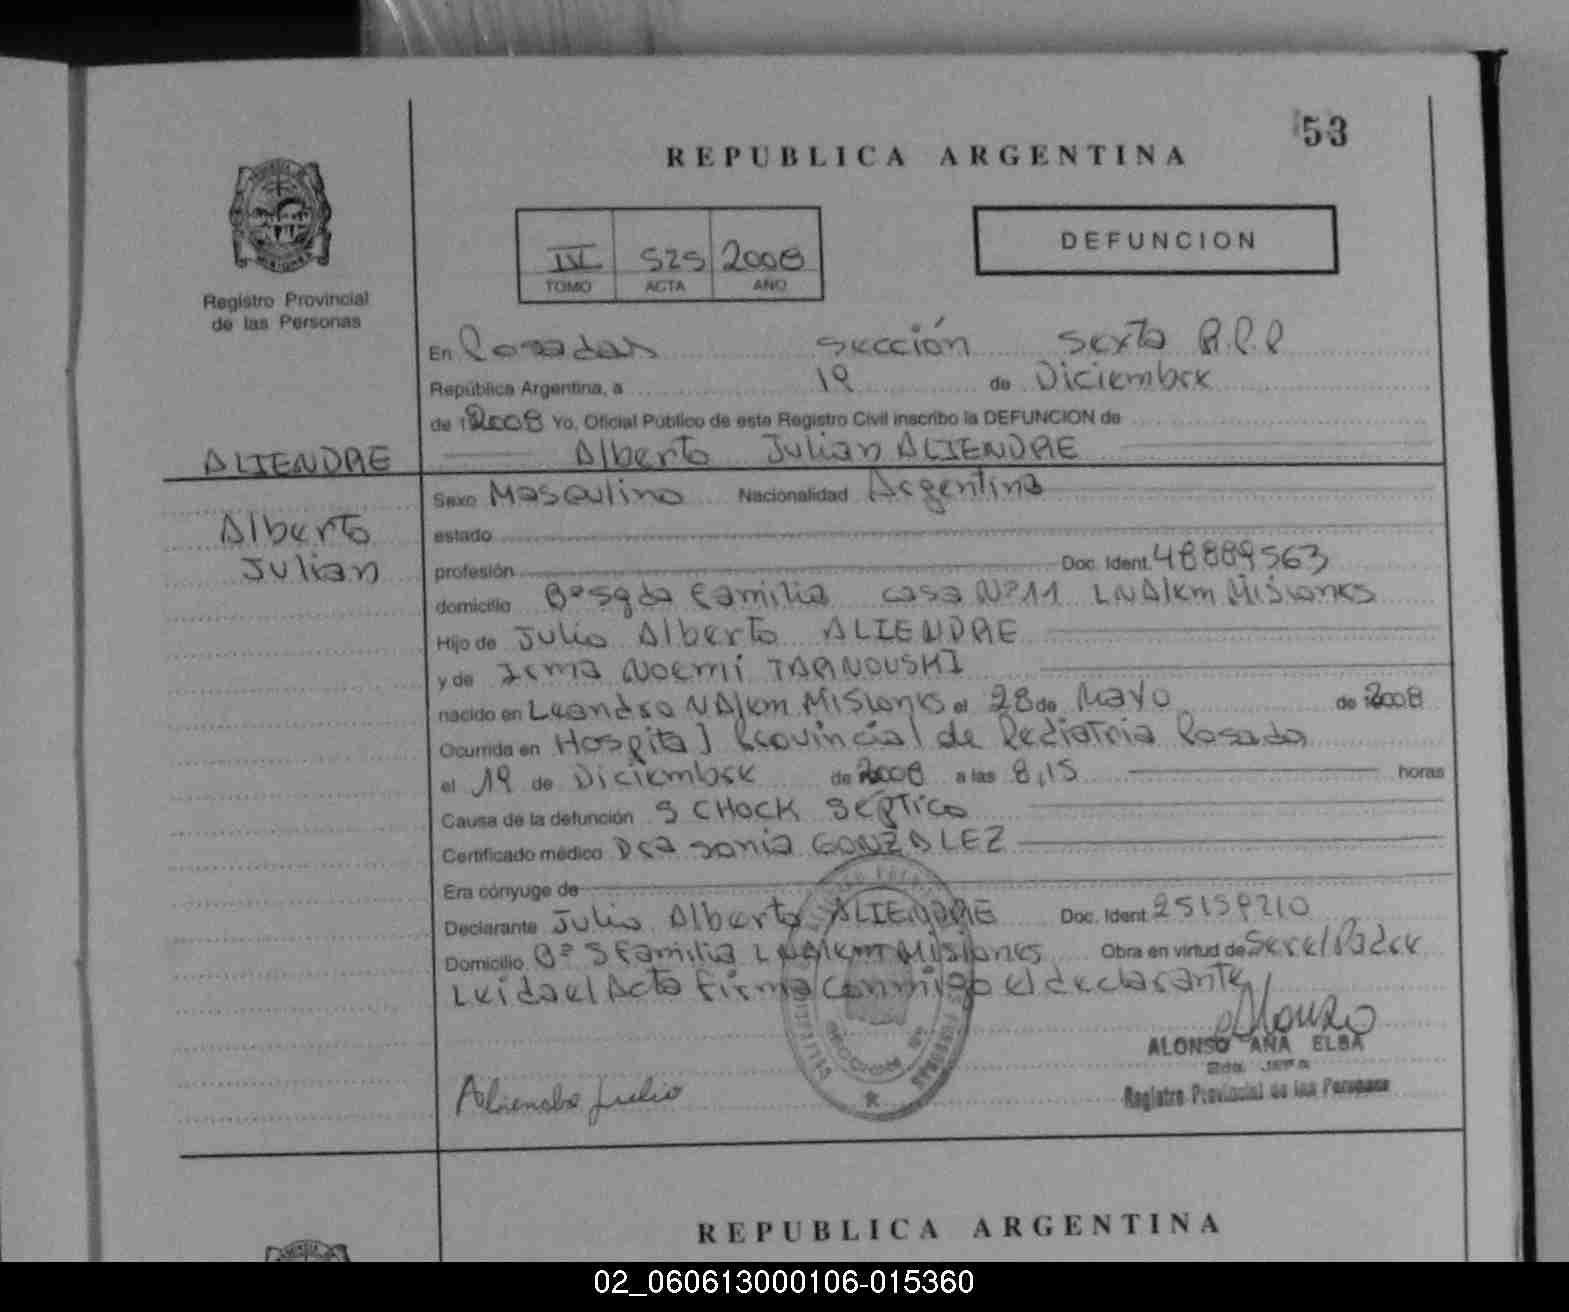 53
REPUBLICA ARGENTINA
Registro Provincial
de las Personas
IV 525 2008
TOMO ACTA AÑO
DEFUNCION
En Posadas sección sexta R.P.P
República Argentina, a 19 de Diciembre
de 2008 Yo, Oficial Público de este Registro Civil inscribo la DEFUNCION de
ALIENDRE Alberto Julian ALIENDRE
Alberto
Julian
Sexo Masculino Nacionalidad Argentina
estado
profesión Doc. Ident. 48889563
domicilio Bº sgda familia casa Nº 11 LNAlem Misiones
Hijo de Julio Alberto ALIENDRE
y de Irma Noemí TARNOUSKI
nacido en Leandro NAlem Misiones el 28 de Mayo de 2008
Ocurrida en Hospital Provincial de Pediatria Posadas
el 19 de Diciembre de 2008 a las 8,15 horas
Causa de la defunción SCHOCK SÉPTICO
Certificado médico Dra Sonia GONZALEZ
Era cónyuge de
Declarante Julio Alberto ALIENDRE Doc. Ident. 25159210
Domicilio Bº S familia LNAlem Misiones Obra en virtud de Ser el Padre
Leida el Acta firma conmigo el declarante
ALONSO ANA ELBA
Registro Provincial de las Personas
Aliendre Julio
REPUBLICA ARGENTINA
02_060613000106-015360